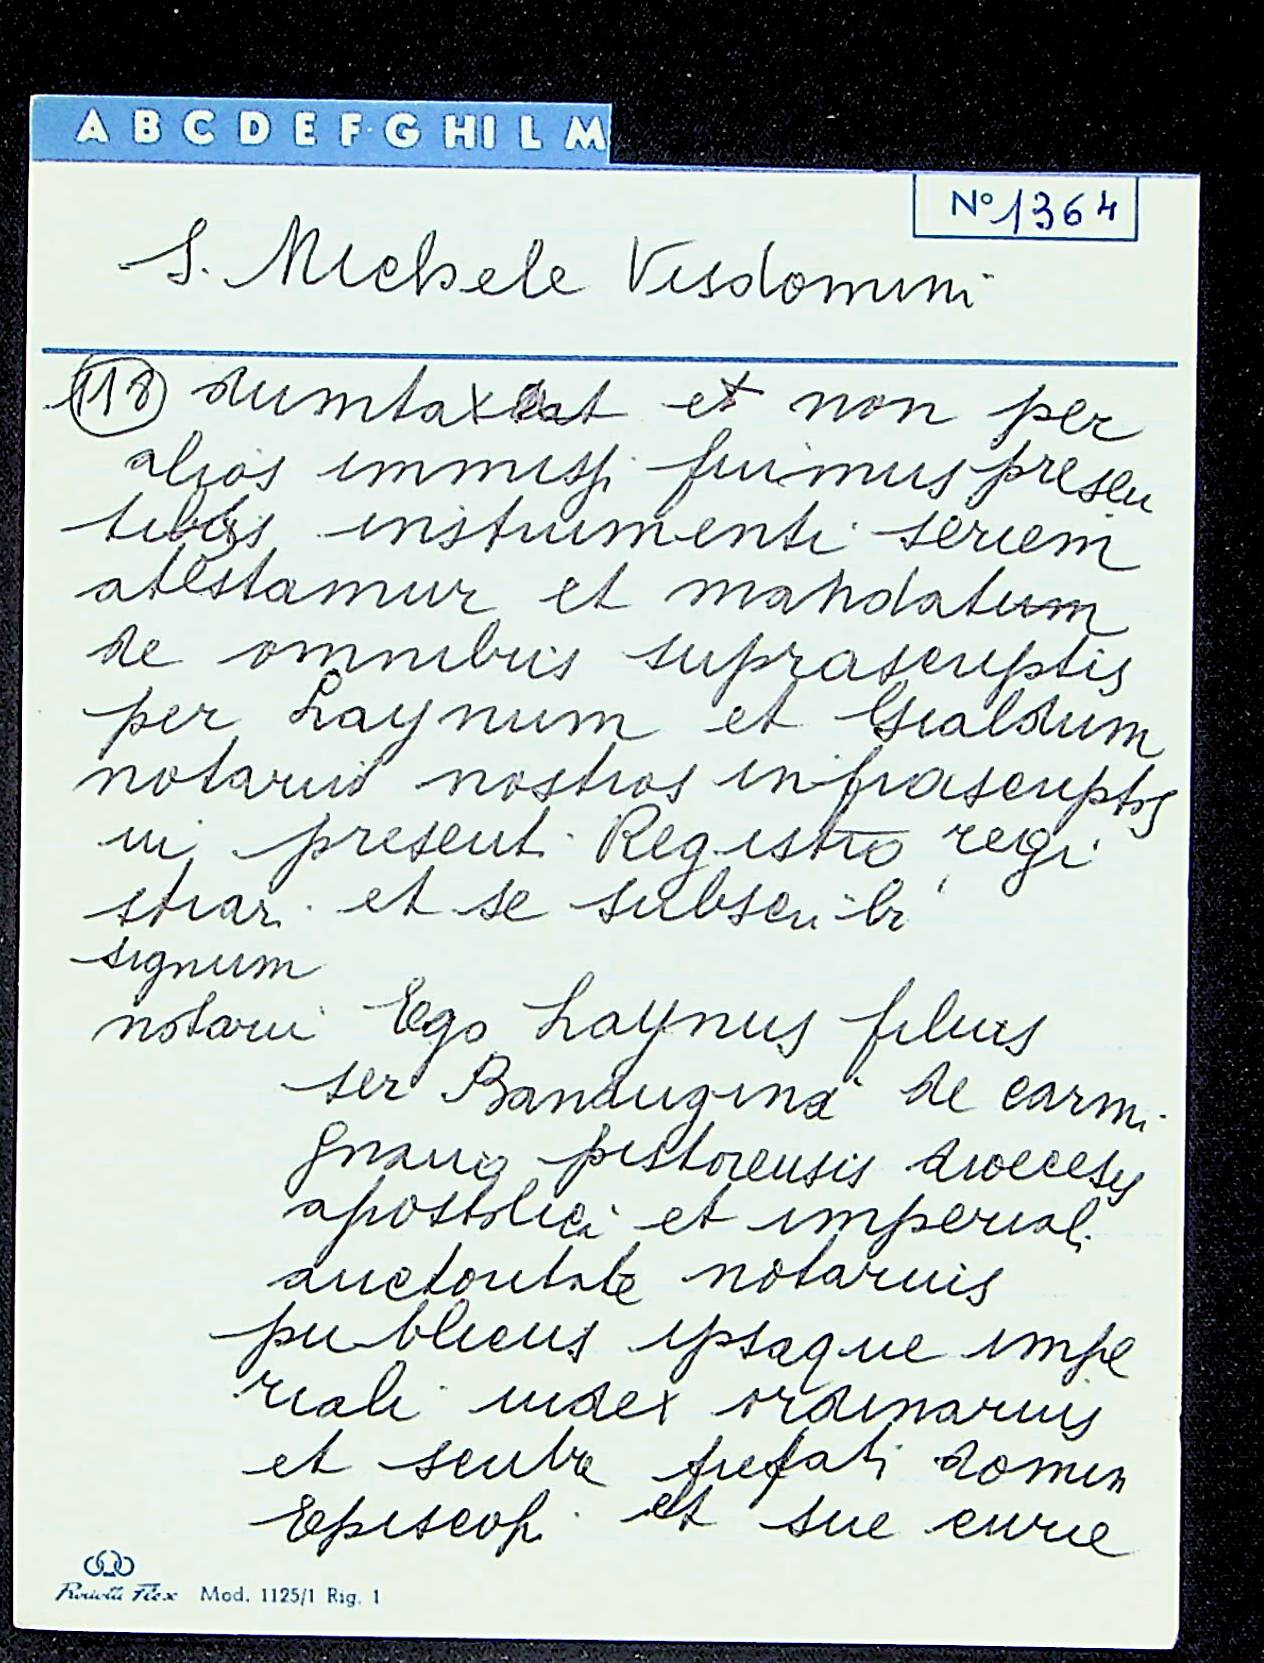 A B C D E F G HI L M
N° 1364
S. Michele Visdomini
118 dumtaxat et non per
alios immissi fuimus presen
tibus instrumenti seriem
atestamur et mandatum
de omnibus suprascriptis
per Laynum et Gialdum
notarios nostros infrascriptos
in present. Registro regi
strari et se subscribi
signum
notarii Ego Laynus filius
ser Bandugina de carmi
gnano pistoriensis diocesis
apostolica et imperiali
auctoritate notarius
publicus ipsaque impe
riali iudex ordinarius
et scriba prefati domini
Episcopi et sue curie
Mod. 1125/1 Rig. 1